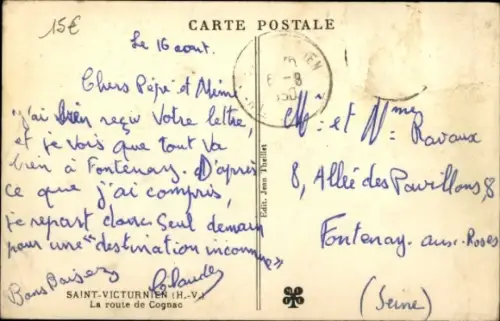 15€
CARTE POSTALE
Le 16 aout.
Chers Pépé et Mémé
J'ai bien reçu votre lettre,
et je vois que tout va
bien à Fontenay. D'après
ce que j'ai compris,
je repart donc seul demain
pour une "destination inconnue"
Bons Baisers
Claude
SAINT-VICTURNIEN (H.-V.)
La route de Cognac
Edit. Jean Theillet
Mr et Mme Ravaux
8, Allée des Pavillons, 8
Fontenay-aux-Roses
(Seine)